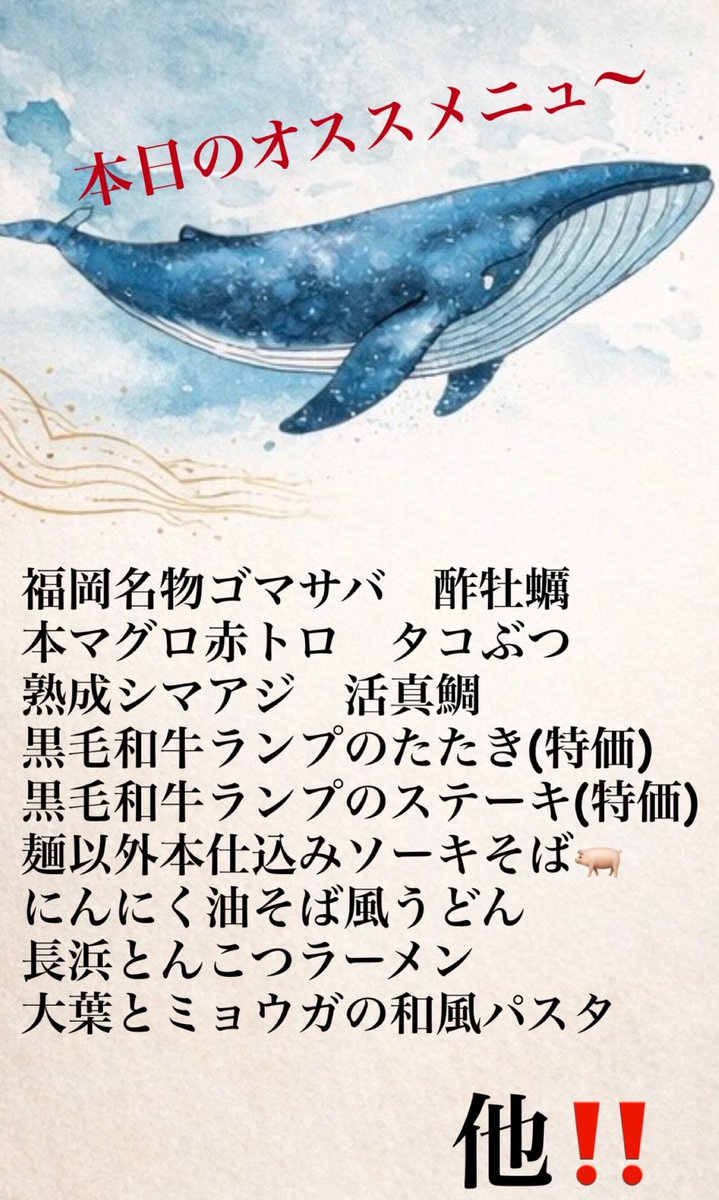 本日のオススメニュ〜
福岡名物ゴマサバ　酢牡蠣
本マグロ赤トロ　タコぶつ
熟成シマアジ　活真鯛
黒毛和牛ランプのたたき(特価)
黒毛和牛ランプのステーキ(特価)
麺以外本仕込みソーキそば🐖
にんにく油そば風うどん
長浜とんこつラーメン
大葉とミョウガの和風パスタ
他‼️